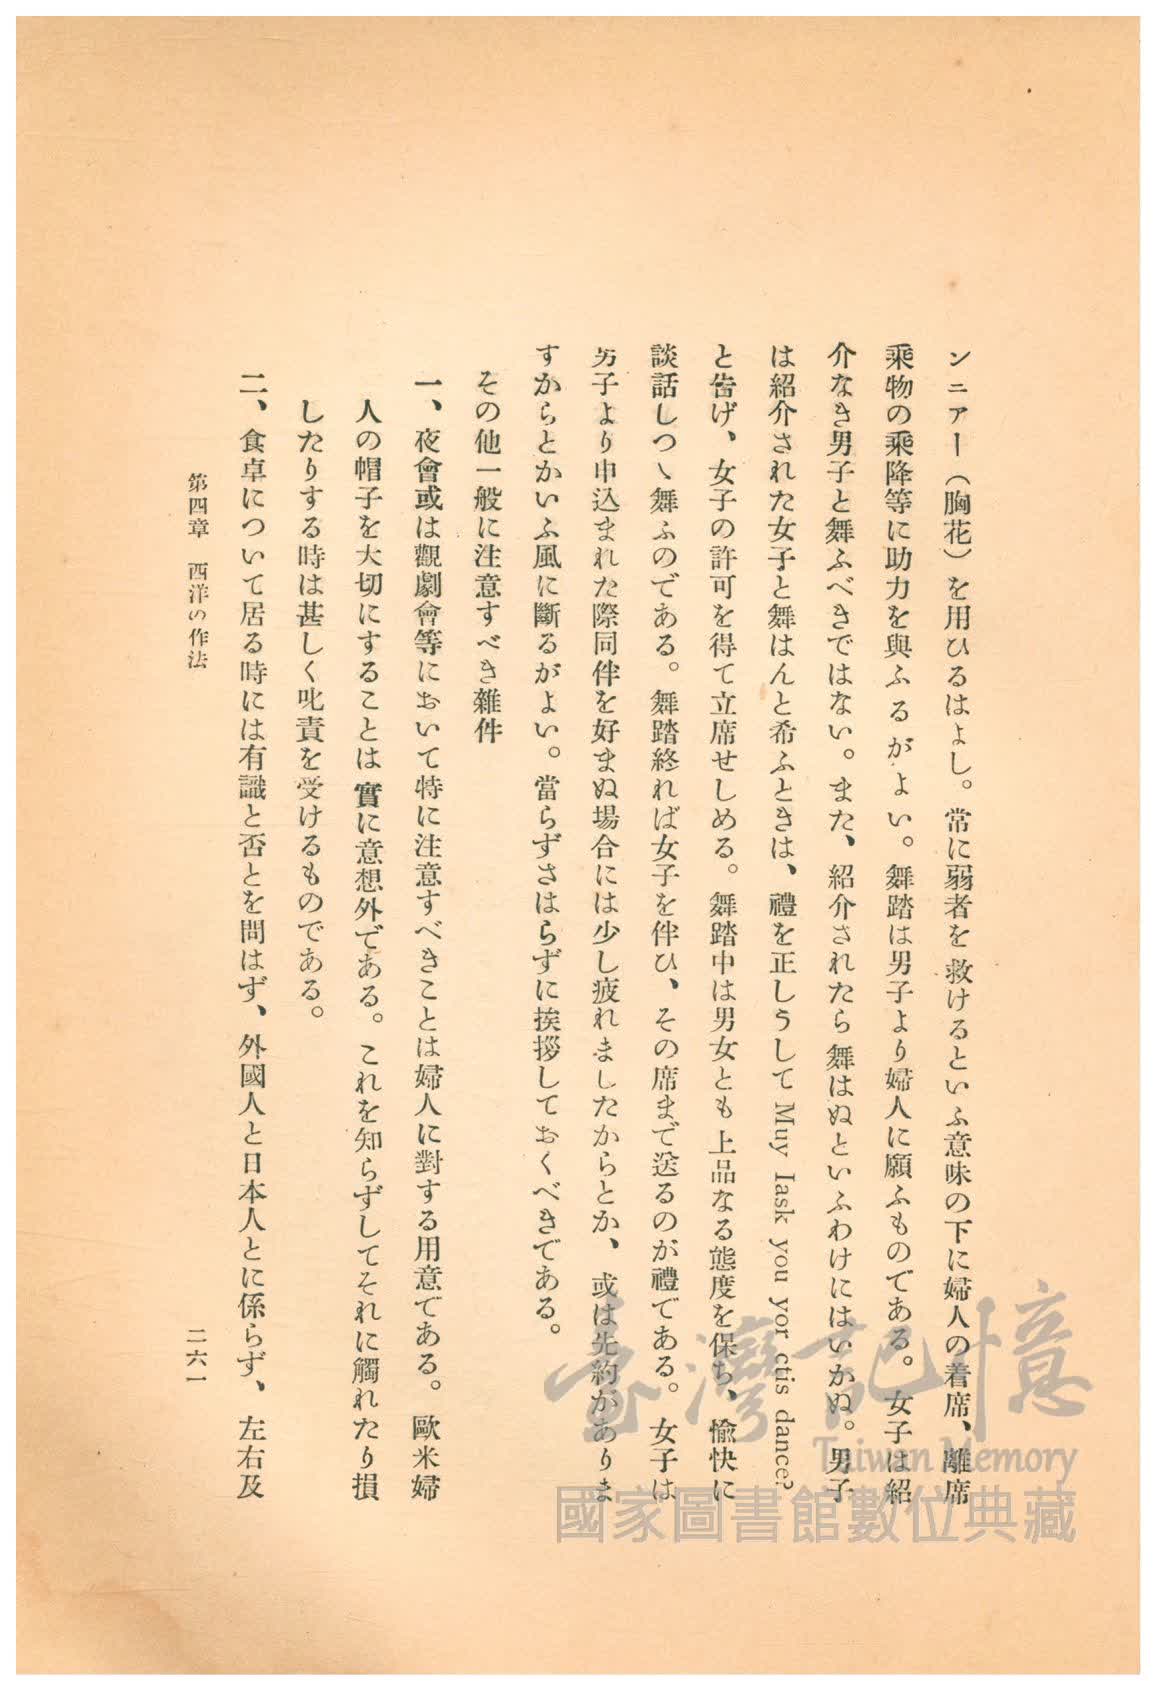 ンニアー（胸花）を用ひるはよし。常に弱者を救けるといふ意味の下に婦人の着席、離席
乘物の乘降等に助力を與ふるがよい。舞踏は男子より婦人に願ふものである。女子は紹
介なき男子と舞ふべきではない。また、紹介されたら舞はぬといふわけにはいかぬ。男子
は紹介された女子と舞はんと希ふときは、禮を正しうして Muy Iask you yor ctis dance?
と告げ、女子の許可を得て立席せしめる。舞踏中は男女とも上品なる態度を保ち、愉快に
談話しつヽ舞ふのである。舞踏終れば女子を伴ひ、その席まで送るのが禮である。女子は
男子より申込まれた際同伴を好まぬ場合には少し疲れましたからとか、或は先約がありま
すからとかいふ風に斷るがよい。當らずさはらずに挨拶しておくべきである。
その他一般に注意すべき雜件
一、夜會或は觀劇會等において特に注意すべきことは婦人に對する用意である。歐米婦
人の帽子を大切にすることは實に意想外である。これを知らずしてそれに觸れたり損
したりする時は甚しく叱責を受けるものである。
二、食卓について居る時には有識と否とを問はず、外國人と日本人とに係らず、左右及
第四章　西洋の作法
二六一
臺灣記憶
Taiwan Memory
國家圖書館數位典藏